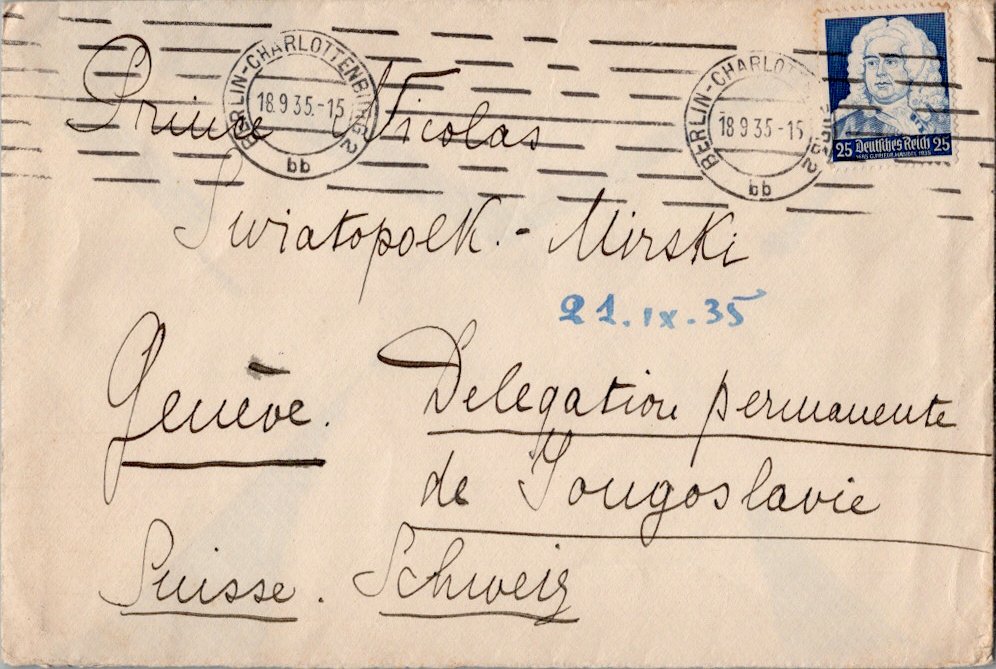 BERLIN-CHARLOTTENBURG 2
18.9.35.-15
bb
BERLIN-CHARLOTTENBURG 2
18.9.35-15
bb
25 Deutsches Reich 25
1685 G.FRIEDR.HÄNDEL 1935
Prince Nicolas
Swiatopolk.-Mirski
21.IX.35
Genève.
Delegation permanente
de Yougoslavie
Suisse. Schweiz